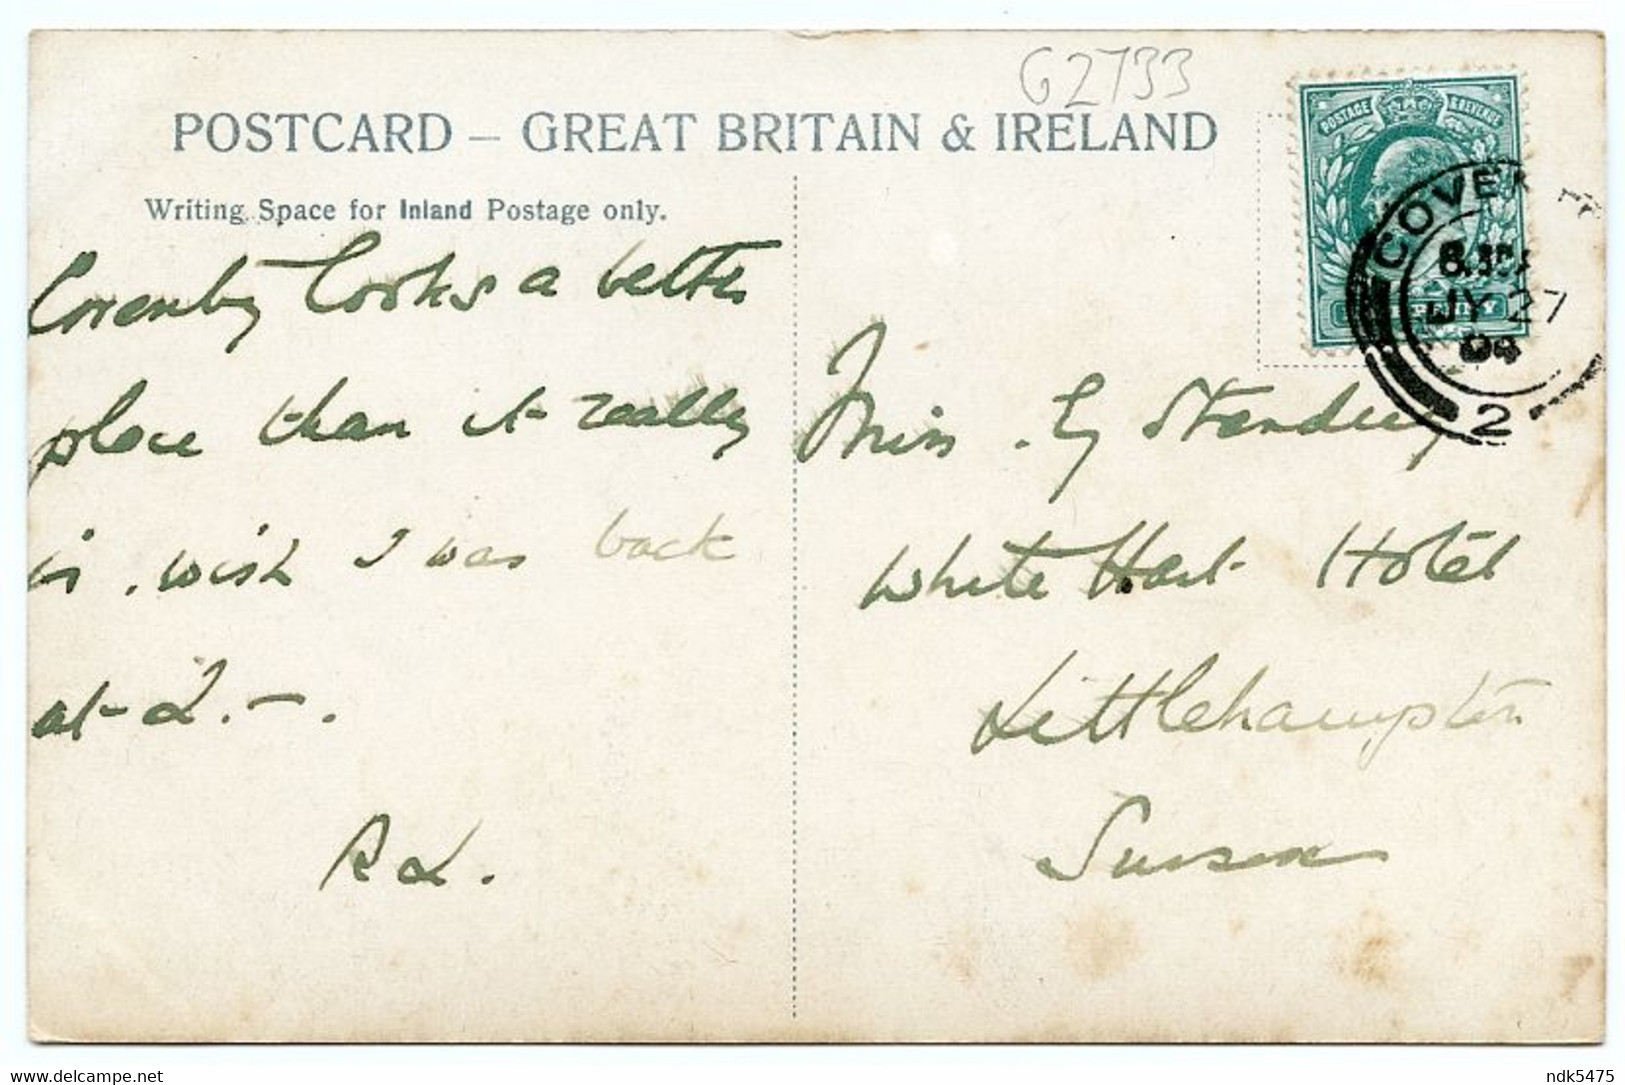 G2733
POSTCARD – GREAT BRITAIN & IRELAND
Writing Space for Inland Postage only.
Coventry looks a better
place than it really
is. wish I was back
at L. –.
R L.
POSTAGE & REVENUE
COVEN
JY 27
2
Miss. G Standing
White Hart Hotel
Littlehampton
Sussex
delcampe.net
ndk5475